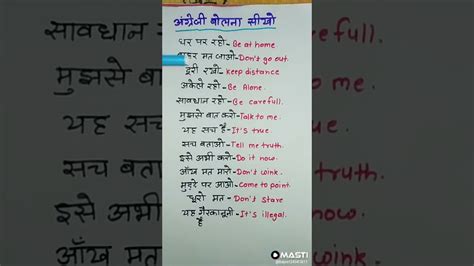 अंग्रेजी बोलना सीखो
घर पर रहो - Be at home
बाहर मत जाओ - Don't go out.
दूरी रखो - Keep distance
अकेले रहो - Be Alone.
सावधान रहो - Be carefull.
मुझसे बात करो - Talk to me.
यह सच है - It's true
सच बताओ - Tell me truth.
इसे अभी करो - Do it now.
आँख मत मारो - Don't wink.
मुद्दे पर आओ - Come to point.
घूरो मत - Don't stare
यह गैरकानूनी है - It's illegal.
MASTI